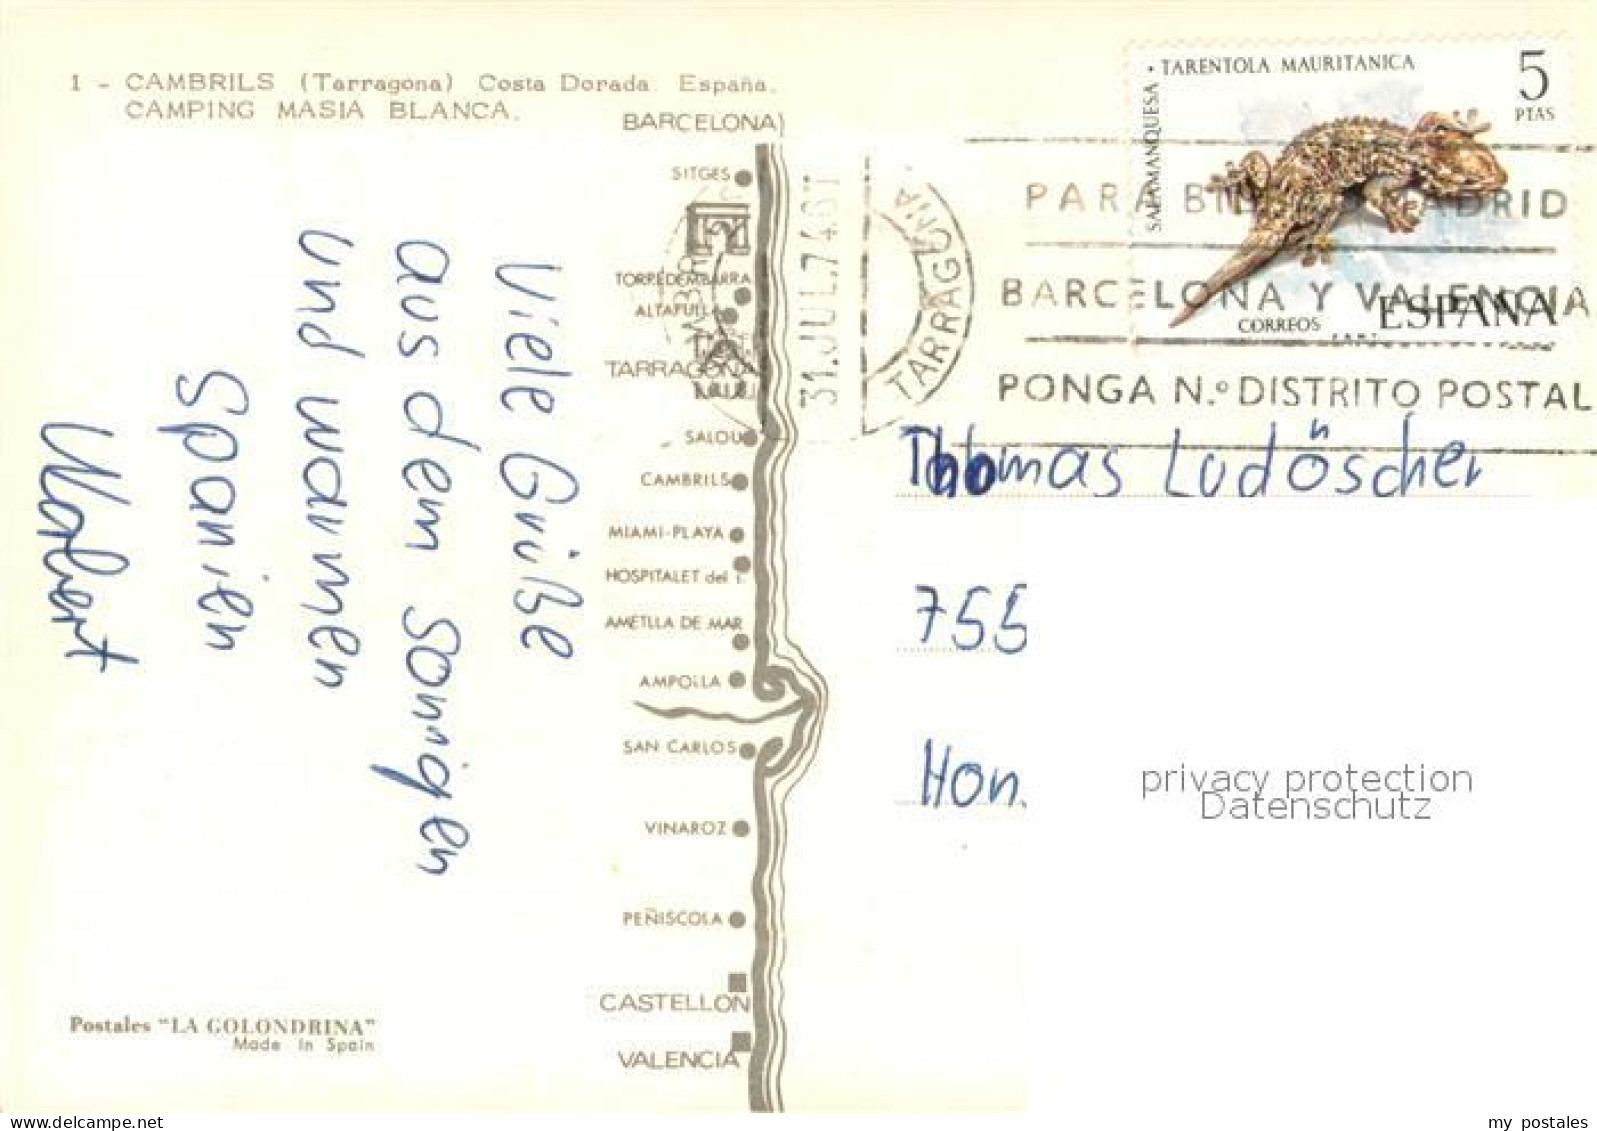 1 - CAMBRILS (Tarragona) Costa Dorada. España.
CAMPING MASIA BLANCA.
Viele Grüße
aus dem sonnigen
und warmen
Spanien
Norbert
Postales "LA GOLONDRINA"
Made in Spain
BARCELONA
SITGES
TORREDEMBARRA
ALTAFULLA
TARRAGONA
SALOU
CAMBRILS
MIAMI-PLAYA
HOSPITALET del I.
AMETLLA DE MAR
AMPOLLA
SAN CARLOS
VINAROZ
PEÑISCOLA
CASTELLON
VALENCIA
31.JUL.74
TARRAGONA
PARA MADRID
BARCELONA Y VALENCIA
PONGA N.º DISTRITO POSTAL
SALAMANQUESA • TARENTOLA MAURITANICA
5
PTAS
CORREOS ESPAÑA
Thomas Ludöscher
755
Hon.
privacy protection
Datenschutz
delcampe.net
my postales